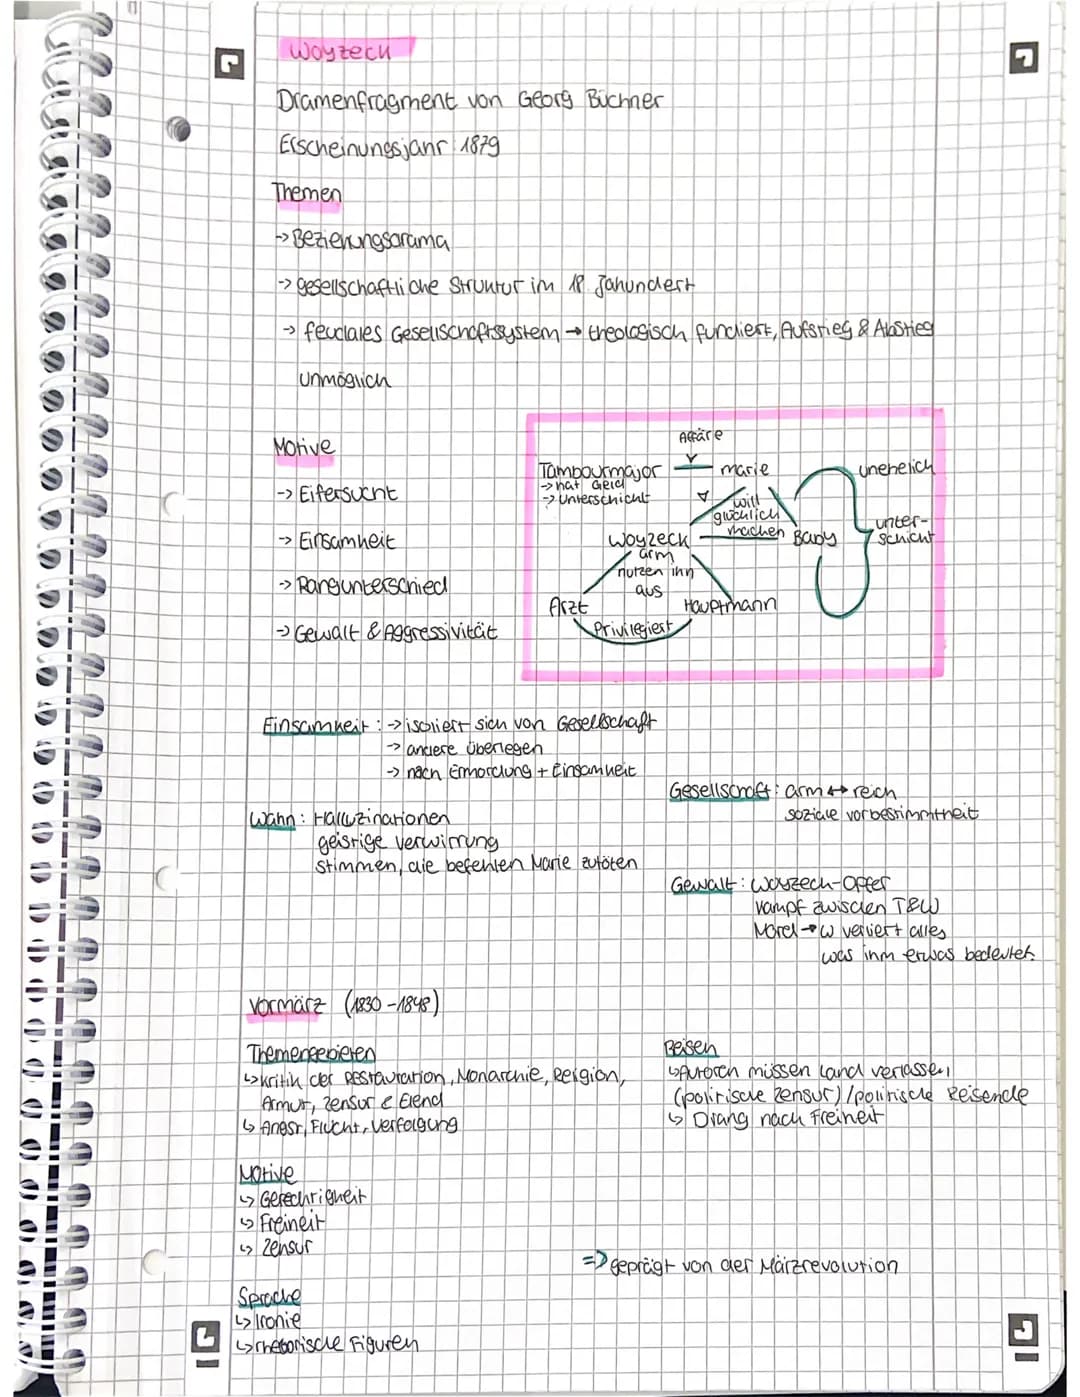 Woyzeck
Dramenfragment von Georg Büchner
Erscheinungsjahr: 1879
Themen
→ Beziehungsdrama
→ gesellschaftliche Struktur im 18 Jahundert
→ feudales Gesellschaftssystem → theologisch fundiert, Aufstieg & Abstieg
unmöglich
Motive
→ Eifersucht
→ Einsamkeit
→ Rangunterschied
→ Gewalt & Aggressivität
Affäre
Tambourmajor
→ hat Geld
→ Unterschicht
marie
unehelich
will
glücklich
machen
Baby
unter-
schicht
Woyzeck
arm
nutzen ihn
aus
Arzt
Hauptmann
Privilegiert
Einsamkeit: → isoliert sich von Gesellschaft
→ andere überlegen
→ nach Ermordung + Einsamkeit
Gesellschaft: arm ↔ reich
soziale vorbestimmtheit
Wahn: Halluzinationen
geistige verwirrung
stimmen, die befehlen Marie zutöten
Gewalt: Woyzeck-Opfer
Kampf zwischen T&W
Mord → W verliert alles
was ihm etwas bedeutet.
Vormärz (1830-1848)
Themengebieten
↳ Kritik der Restauration, Monarchie, Religion,
Armut, Zensur & Elend
↳ Angst, Flucht, Verfolgung
Reisen
↳ Autoren müssen Land verlassen
(politische Zensur) / politische Reisende
↳ Drang nach Freiheit
Motive
↳ Gerechtigkeit
↳ Freiheit
↳ Zensur
⇒ geprägt von der Märzrevolution
Sprache
↳ Ironie
↳ rhetorische Figuren